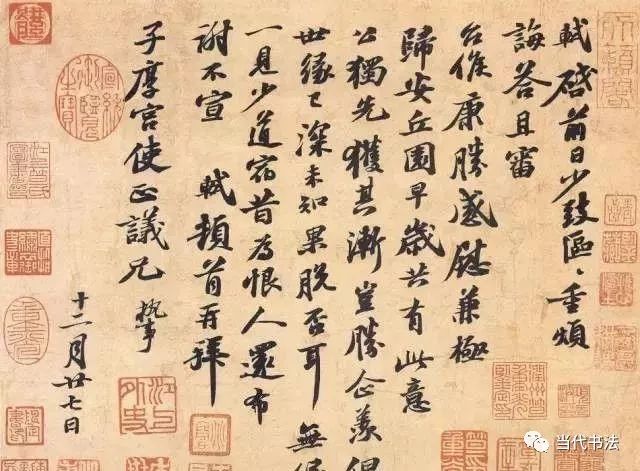 軾啓前日少致區〻重煩
誨答且審
台候康勝感慰兼極
歸安丘園早歲共有此意
公獨先獲其漸豈勝企羨但
世緣已深未知果脫否耳無緣
一見少道宿昔為恨人還布
謝不宣 軾頓首再拜
子厚宮使正議兄 執事
十二月廿七日
江上外史
当代书法